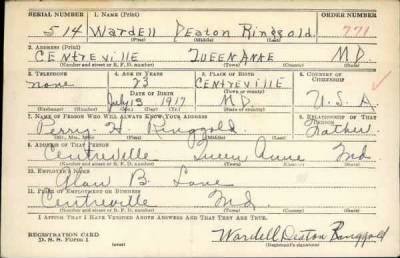 SERIAL NUMBER 1. NAME (Print) ORDER NUMBER
514 Wardell Deaton Ringgold. 771
(First) (Middle) (Last)
2. ADDRESS (Print)
CENTREVILLE QUEEN ANNE MD.
(Number and street or R. F. D. number) (Town) (County) (State)
3. TELEPHONE 4. AGE IN YEARS 5. PLACE OF BIRTH 6. COUNTRY OF CITIZENSHIP
none 23 CENTREVILLE
DATE OF BIRTH (Town or county)
July 15 1917 MD. U.S.A
(Mo.) (Day) (Yr.) (State or country)
7. NAME OF PERSON WHO WILL ALWAYS KNOW YOUR ADDRESS 8. RELATIONSHIP OF THAT PERSON
Perry H. Ringgold Father
(Mr., Mrs., Miss) (First) (Middle) (Last)
9. ADDRESS OF THAT PERSON
Centreville Queen Anne Md
(Number and street or R. F. D. number) (Town) (County) (State)
10. EMPLOYER'S NAME
Alan B. Lane
11. PLACE OF EMPLOYMENT OR BUSINESS
Centreville Md.
(Number and street or R. F. D. number) (Town) (County) (State)
I AFFIRM THAT I HAVE VERIFIED ABOVE ANSWERS AND THAT THEY ARE TRUE.
REGISTRATION CARD
D. S. S. FORM 1 (over) Wardell Deaton Ringgold
(Registrant's signature)